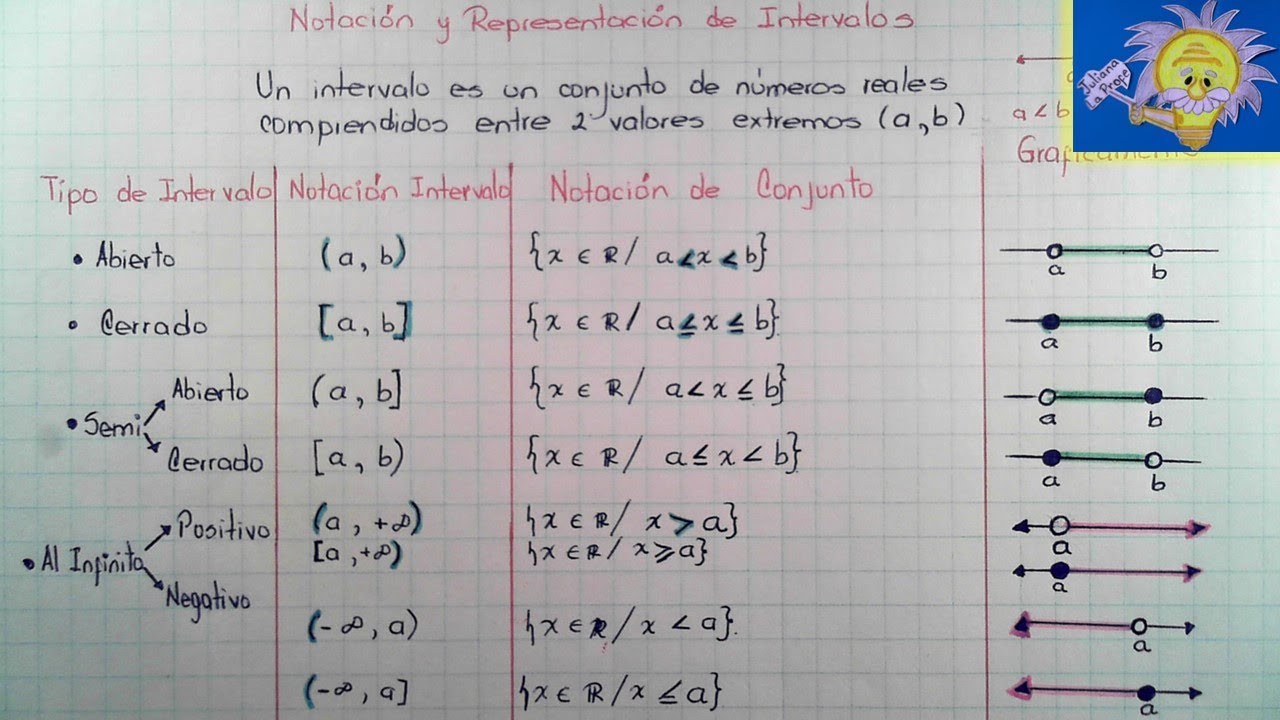 Notación y Representación de Intervalos
Un intervalo es un conjunto de números reales
comprendidos entre 2 valores extremos (a,b)
Juliana
La Profe
a
a < b
Tipo de Intervalo Notación Intervalo Notación de Conjunto
• Abierto (a, b) {x ∈ ℝ / a < x < b}
a b
• Cerrado [a, b] {x ∈ ℝ / a ≤ x ≤ b}
a b
• Semi
Abierto (a, b] {x ∈ ℝ / a < x ≤ b}
a b
Cerrado [a, b) {x ∈ ℝ / a ≤ x < b}
a b
• Al Infinito
Positivo (a, +∞) {x ∈ ℝ / x > a}
a
[a, +∞) {x ∈ ℝ / x ≥ a}
a
Negativo
(-∞, a) {x ∈ ℝ / x < a}.
a
(-∞, a] {x ∈ ℝ / x ≤ a}
a